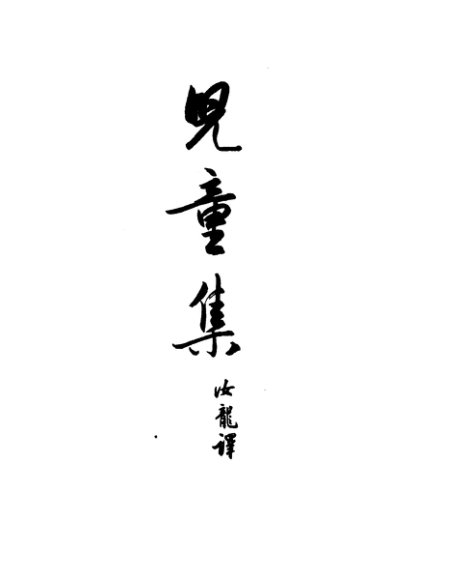 兒童集
汝龍譯